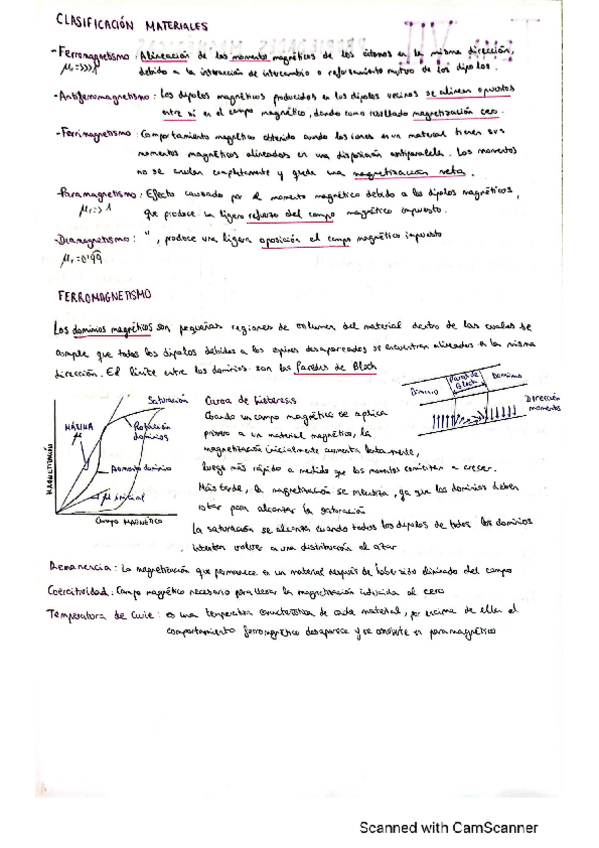 CLASIFICACIÓN MATERIALES
- Ferromagnetismo : Alineación de los momentos magnéticos de los átomos en la misma dirección,
μr=>>>1 debido a la interacción de intercambio o reforzamiento mutuo de los dipolos.
- Antiferromagnetismo : Los dipolos magnéticos producidos en los dipolos vecinos se alinean opuestos
entre sí en el campo magnético, dando como resultado magnetización cero.
- Ferrimagnetismo : Comportamiento magnético obtenido cuando los iones en un material tienen sus
momentos magnéticos alineados en una disposición antiparalela. Los momentos
no se anulan completamente y queda una magnetización neta.
- Paramagnetismo : Efecto causado por el momento magnético debido a los dipolos magnéticos,
μr=>1 que produce un ligero refuerzo del campo magnético impuesto.
- Diamagnetismo : " , produce una ligera oposición al campo magnético impuesto
μr=0'99
FERROMAGNETISMO
Los dominios magnéticos son pequeñas regiones de volumen del material dentro de las cuales se
cumple que todos los dipolos debidos a los espines desapareados se encuentran alineados en la misma
dirección. El límite entre los dominios son las Paredes de Bloch
Dominio Pared de Bloch Dominio
Dirección momentos
MAGNETIZACIÓN
Saturación
MÁXIMA μ
Rotación dominios
Aumento dominio
μ inicial
Campo MAGNÉTICO
Curva de histéresis
Cuando un campo magnético se aplica
primero a un material magnético, la
magnetización inicialmente aumenta lentamente,
luego más rápido a medida que los momentos comienzan a crecer.
Más tarde, la magnetización se ralentiza, ya que los dominios deben
rotar para alcanzar la saturación
La saturación se alcanza cuando todos los dipolos de todos los dominios
intentan volver a una distribución al azar
Remanencia : La magnetización que permanece en un material después de haber sido eliminado del campo
Coercitividad : Campo magnético necesario para llevar la magnetización inducida al cero
Temperatura de Curie : es una temperatura característica de cada material, por encima de ella el
comportamiento ferromagnético desaparece y se convierte en paramagnético
Scanned with CamScanner